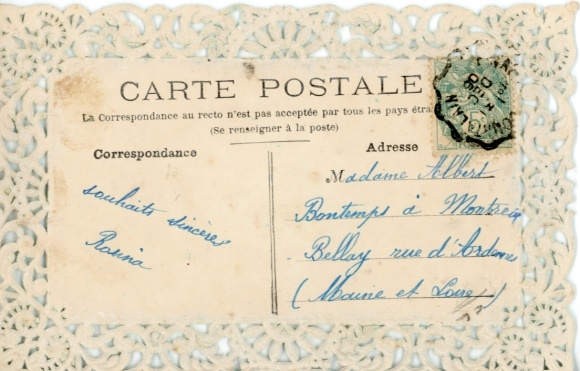 CARTE POSTALE
La Correspondance au recto n'est pas acceptée par tous les pays étra
(Se renseigner à la poste)
Correspondance
Adresse
souhaits sincères
Madame Albert
Bontemps à Montreui
Bellay rue d'Ardenne
(Maine et Loire)